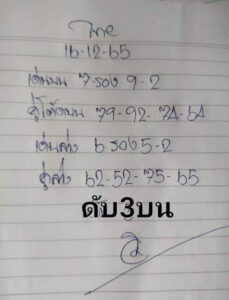 16-12-65
เด่นบน 7 รอง 9-2
คู่โต๊ดบน 79-92-74-64
เด่นล่าง 6 รอง 5-2
คู่ล่าง 62-52-75-65
ดับ3บน